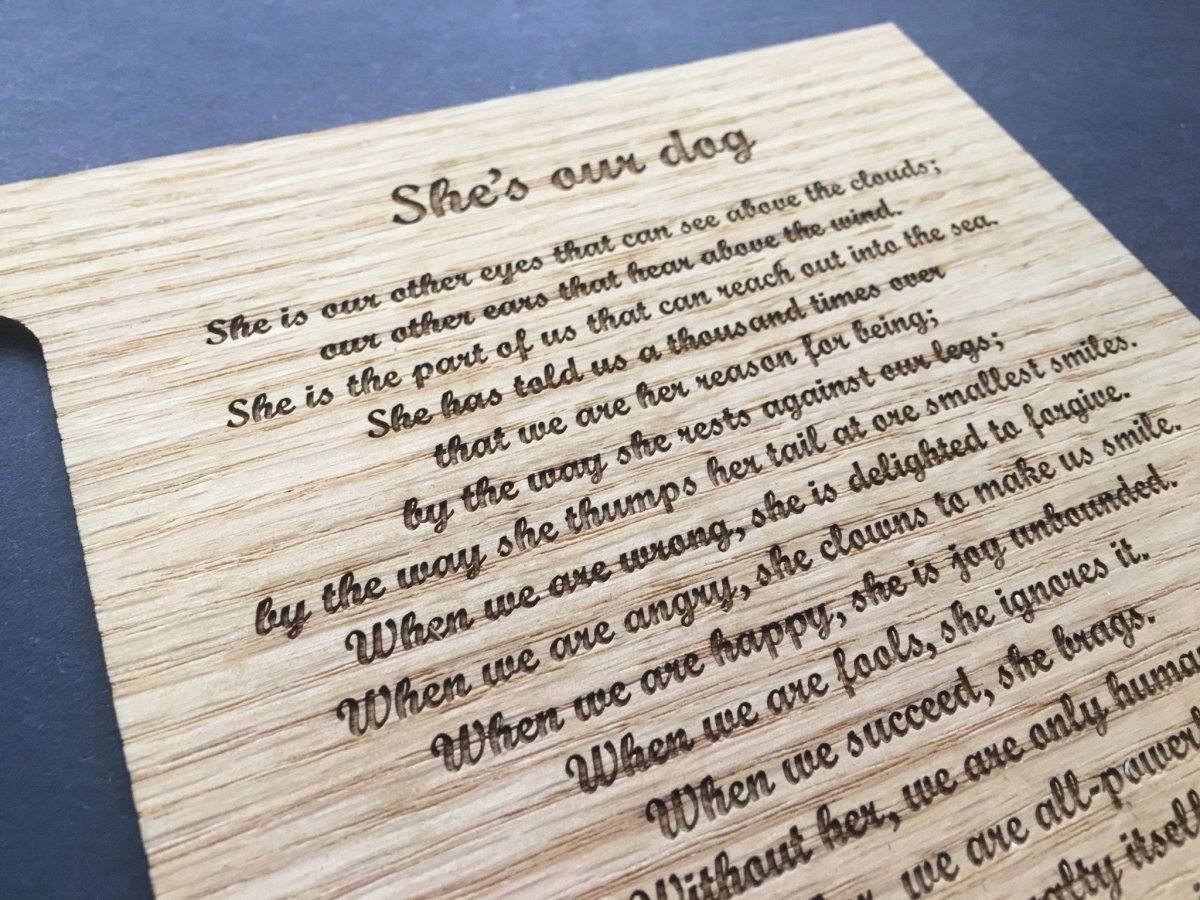 She's our dog
She is our other eyes that can see above the clouds;
our other ears that hear above the wind.
She is the part of us that can reach out into the sea.
She has told us a thousand times over
that we are her reason for being;
by the way she rests against our legs;
by the way she thumps her tail at ore smallest smiles.
When we are wrong, she is delighted to forgive.
When we are angry, she clowns to make us smile.
When we are happy, she is joy unbounded.
When we are fools, she ignores it.
When we succeed, she brags.
Without her, we are only human
we are all-power
itself